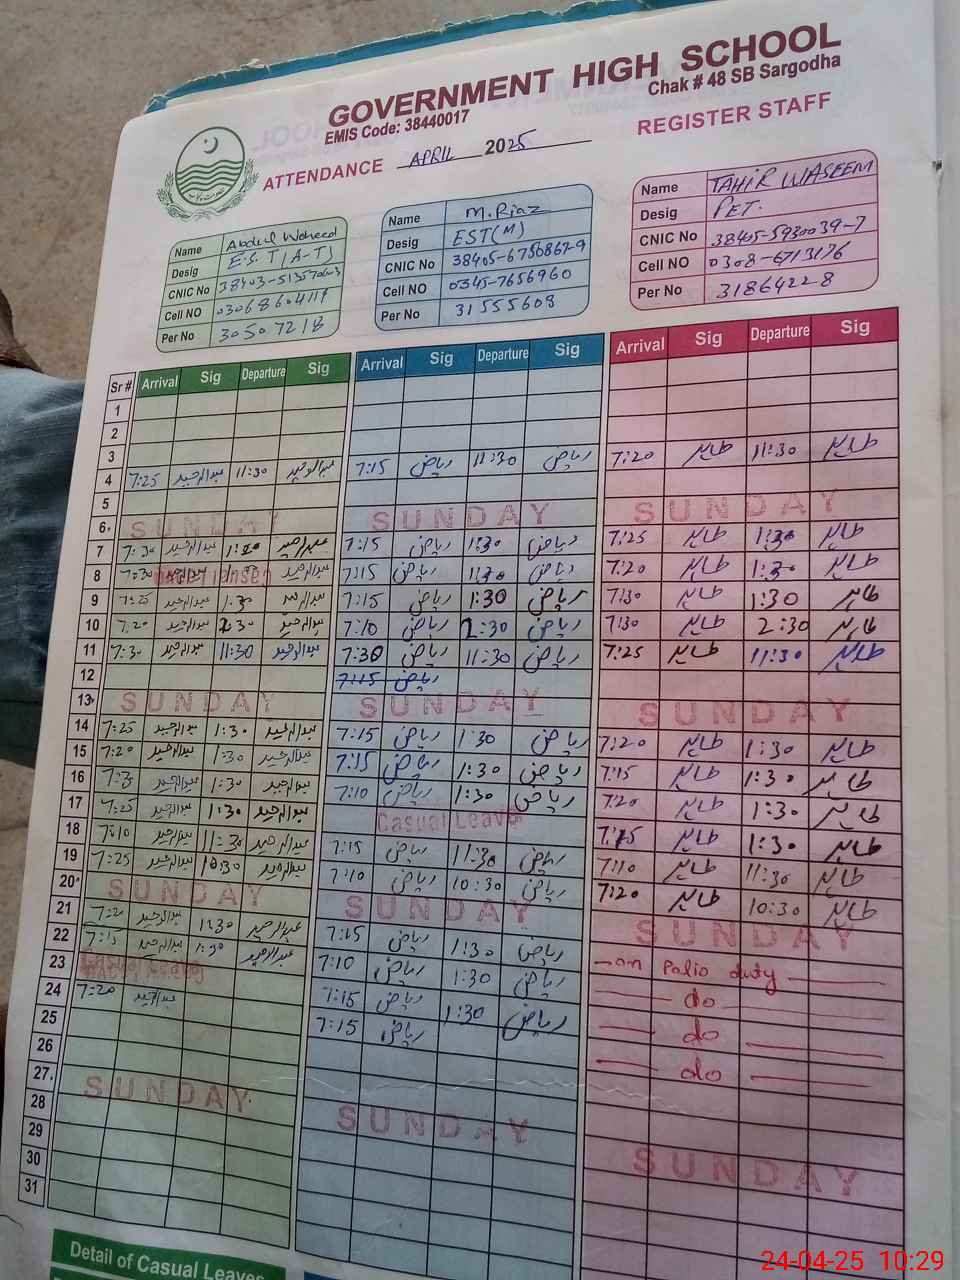 GOVERNMENT HIGH SCHOOL
EMIS Code: 38440017
Chak # 48 SB Sargodha
ATTENDANCE APRIL 2025 REGISTER STAFF
Name Abdul Waheed
Desig E.S.T (A-T)
CNIC No
Cell NO
Per No
Name M. Riaz
Desig EST(M)
CNIC No 38405-6750867-9
Cell NO 0345-7656960
Per No 31555608
Name TAHIR WASEEM
Desig PET.
CNIC No 38405-5930039-7
Cell NO 0308-6713176
Per No 31864228
Sr # Arrival Sig Departure Sig Arrival Sig Departure Sig Arrival Sig Departure Sig
1
2
3
4 7:25 عبدالوحید 11:30 عبدالوحید 7:15 ریاض 11:30 ریاض 7:20 طاہر 11:30 طاہر
5
6 SUNDAY SUNDAY SUNDAY
7 7:30 عبدالوحید 1:30 عبدالوحید 7:15 ریاض 1:30 ریاض 7:25 طاہر 1:30 طاہر
8 7:30 عبدالوحید 7:15 ریاض 1:30 ریاض 7:20 طاہر 1:30 طاہر
9 7:25 عبدالوحید 1:30 عبدالوحید 7:15 ریاض 1:30 ریاض 7:30 طاہر 1:30 طاہر
10 7:20 عبدالوحید 2:30 عبدالوحید 7:10 ریاض 2:30 ریاض 7:30 طاہر 2:30 طاہر
11 7:30 عبدالوحید 11:30 عبدالوحید 7:30 ریاض 11:30 ریاض 7:25 طاہر 11:30 طاہر
12 7:15 ریاض
13 SUNDAY SUNDAY SUNDAY
14 7:25 عبدالوحید 1:30 عبدالوحید 7:15 ریاض 1:30 ریاض 7:20 طاہر 1:30 طاہر
15 7:20 عبدالوحید 1:30 عبدالوحید 7:15 ریاض 1:30 ریاض 7:15 طاہر 1:30 طاہر
16 عبدالوحید 1:30 عبدالوحید 7:10 ریاض 1:30 ریاض 7:20 طاہر 1:30 طاہر
17 7:25 عبدالوحید 1:30 عبدالوحید Casual Leave 7:15 طاہر 1:30 طاہر
18 7:10 عبدالوحید 11:30 عبدالوحید 7:15 ریاض 11:30 ریاض 7:10 طاہر 11:30 طاہر
19 7:25 عبدالوحید 10:30 عبدالوحید 7:10 ریاض 10:30 ریاض 7:20 طاہر 10:30 طاہر
20 SUNDAY SUNDAY SUNDAY
21 عبدالوحید 1:30 عبدالوحید 7:15 ریاض 1:30 ریاض on Polio duty
22 7:15 عبدالوحید 1:30 عبدالوحید 7:10 ریاض 1:30 ریاض do
23 Casual Leave 7:15 ریاض 1:30 ریاض do
24 7:20 عبدالوحید 7:15 ریاض do
25
26
27 SUNDAY SUNDAY SUNDAY
28
29
30
31
Detail of Casual Leaves
24-04-25 10:29